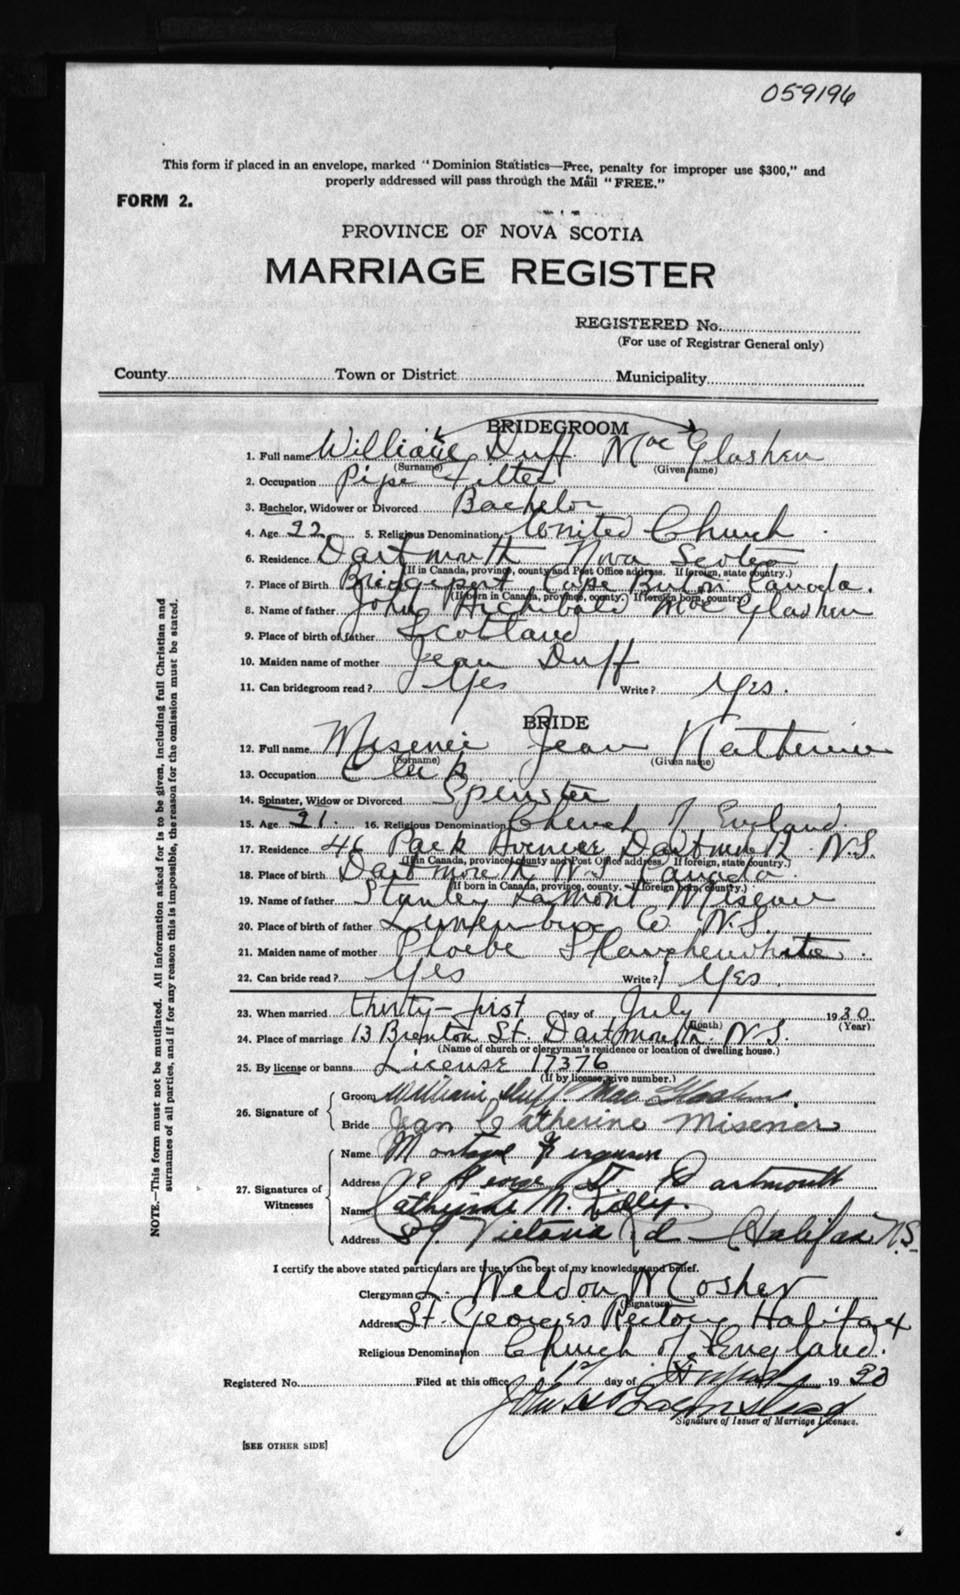 059196
This form if placed in an envelope, marked "Dominion Statistics—Free, penalty for improper use $300," and
properly addressed will pass through the Mail "FREE."
FORM 2.
PROVINCE OF NOVA SCOTIA
MARRIAGE REGISTER
REGISTERED No.
(For use of Registrar General only)
County Town or District Municipality
BRIDEGROOM
1. Full name William Duff MacGlashen
(Surname) (Given name)
2. Occupation Pipe Fitter
3. Bachelor, Widower or Divorced Bachelor
4. Age 22 5. Religious Denomination United Church
6. Residence Dartmouth Nova Scotia
(If in Canada, province, county and Post Office address. If foreign, state country.)
7. Place of Birth Bridgeport Cape Breton Canada.
(If born in Canada, province, county. If foreign born, country.)
8. Name of father John Archibald MacGlashen
9. Place of birth of father Scotland
10. Maiden name of mother Jean Duff
11. Can bridegroom read? Yes Write? Yes.
BRIDE
12. Full name Misener Jean Katherine
(Surname) (Given name)
13. Occupation Clerk
14. Spinster, Widow or Divorced Spinster
15. Age 21. 16. Religious Denomination Church of England.
17. Residence 46 Park Avenue Dartmouth N.S.
(If in Canada, province, county and Post Office address. If foreign, state country.)
18. Place of birth Dartmouth N.S. Canada.
(If born in Canada, province, county. If foreign born, country.)
19. Name of father Stanley Lamont Misener
20. Place of birth of father Lunenburg Co N.S.
21. Maiden name of mother Phoebe Slauenwhite.
22. Can bride read? Yes Write? Yes.
23. When married thirty-first day of July 1930
(Month) (Year)
24. Place of marriage 13 Brenton St. Dartmouth. N.S.
(Name of church or clergyman's residence or location of dwelling house.)
25. By license or banns License 17376
(If by license, give number.)
26. Signature of
Groom William Duff MacGlashen.
Bride Jean Catherine Misener
27. Signatures of Witnesses
Name Montague Ferguson
Address St Dartmouth
Name Catherine M. Kelley.
Address 89. Victoria Rd Halifax N.S.
I certify the above stated particulars are true to the best of my knowledge and belief.
Clergyman L. Weldon Mosher
(Signature)
Address St. George's Rectory Halifax
Religious Denomination Church of England.
Registered No. Filed at this office day of August 1930
Signature of Issuer of Marriage Licenses.
[SEE OTHER SIDE]
NOTE.—This form must not be mutilated. All information asked for is to be given, including full Christian and
surnames of all parties, and if for any reason this is impossible, the reason for the omission must be stated.